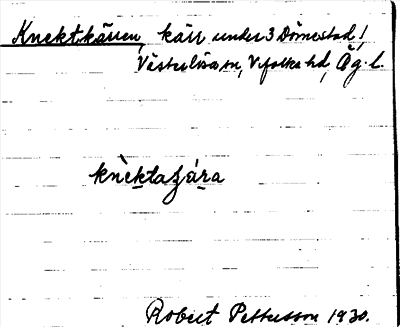 Knektkärren, kärr under 3 Dömestad,
Västerlösa sn, Vifolka hd, Ög. l.
knèktaȥára
Robert Pettersson 1930.